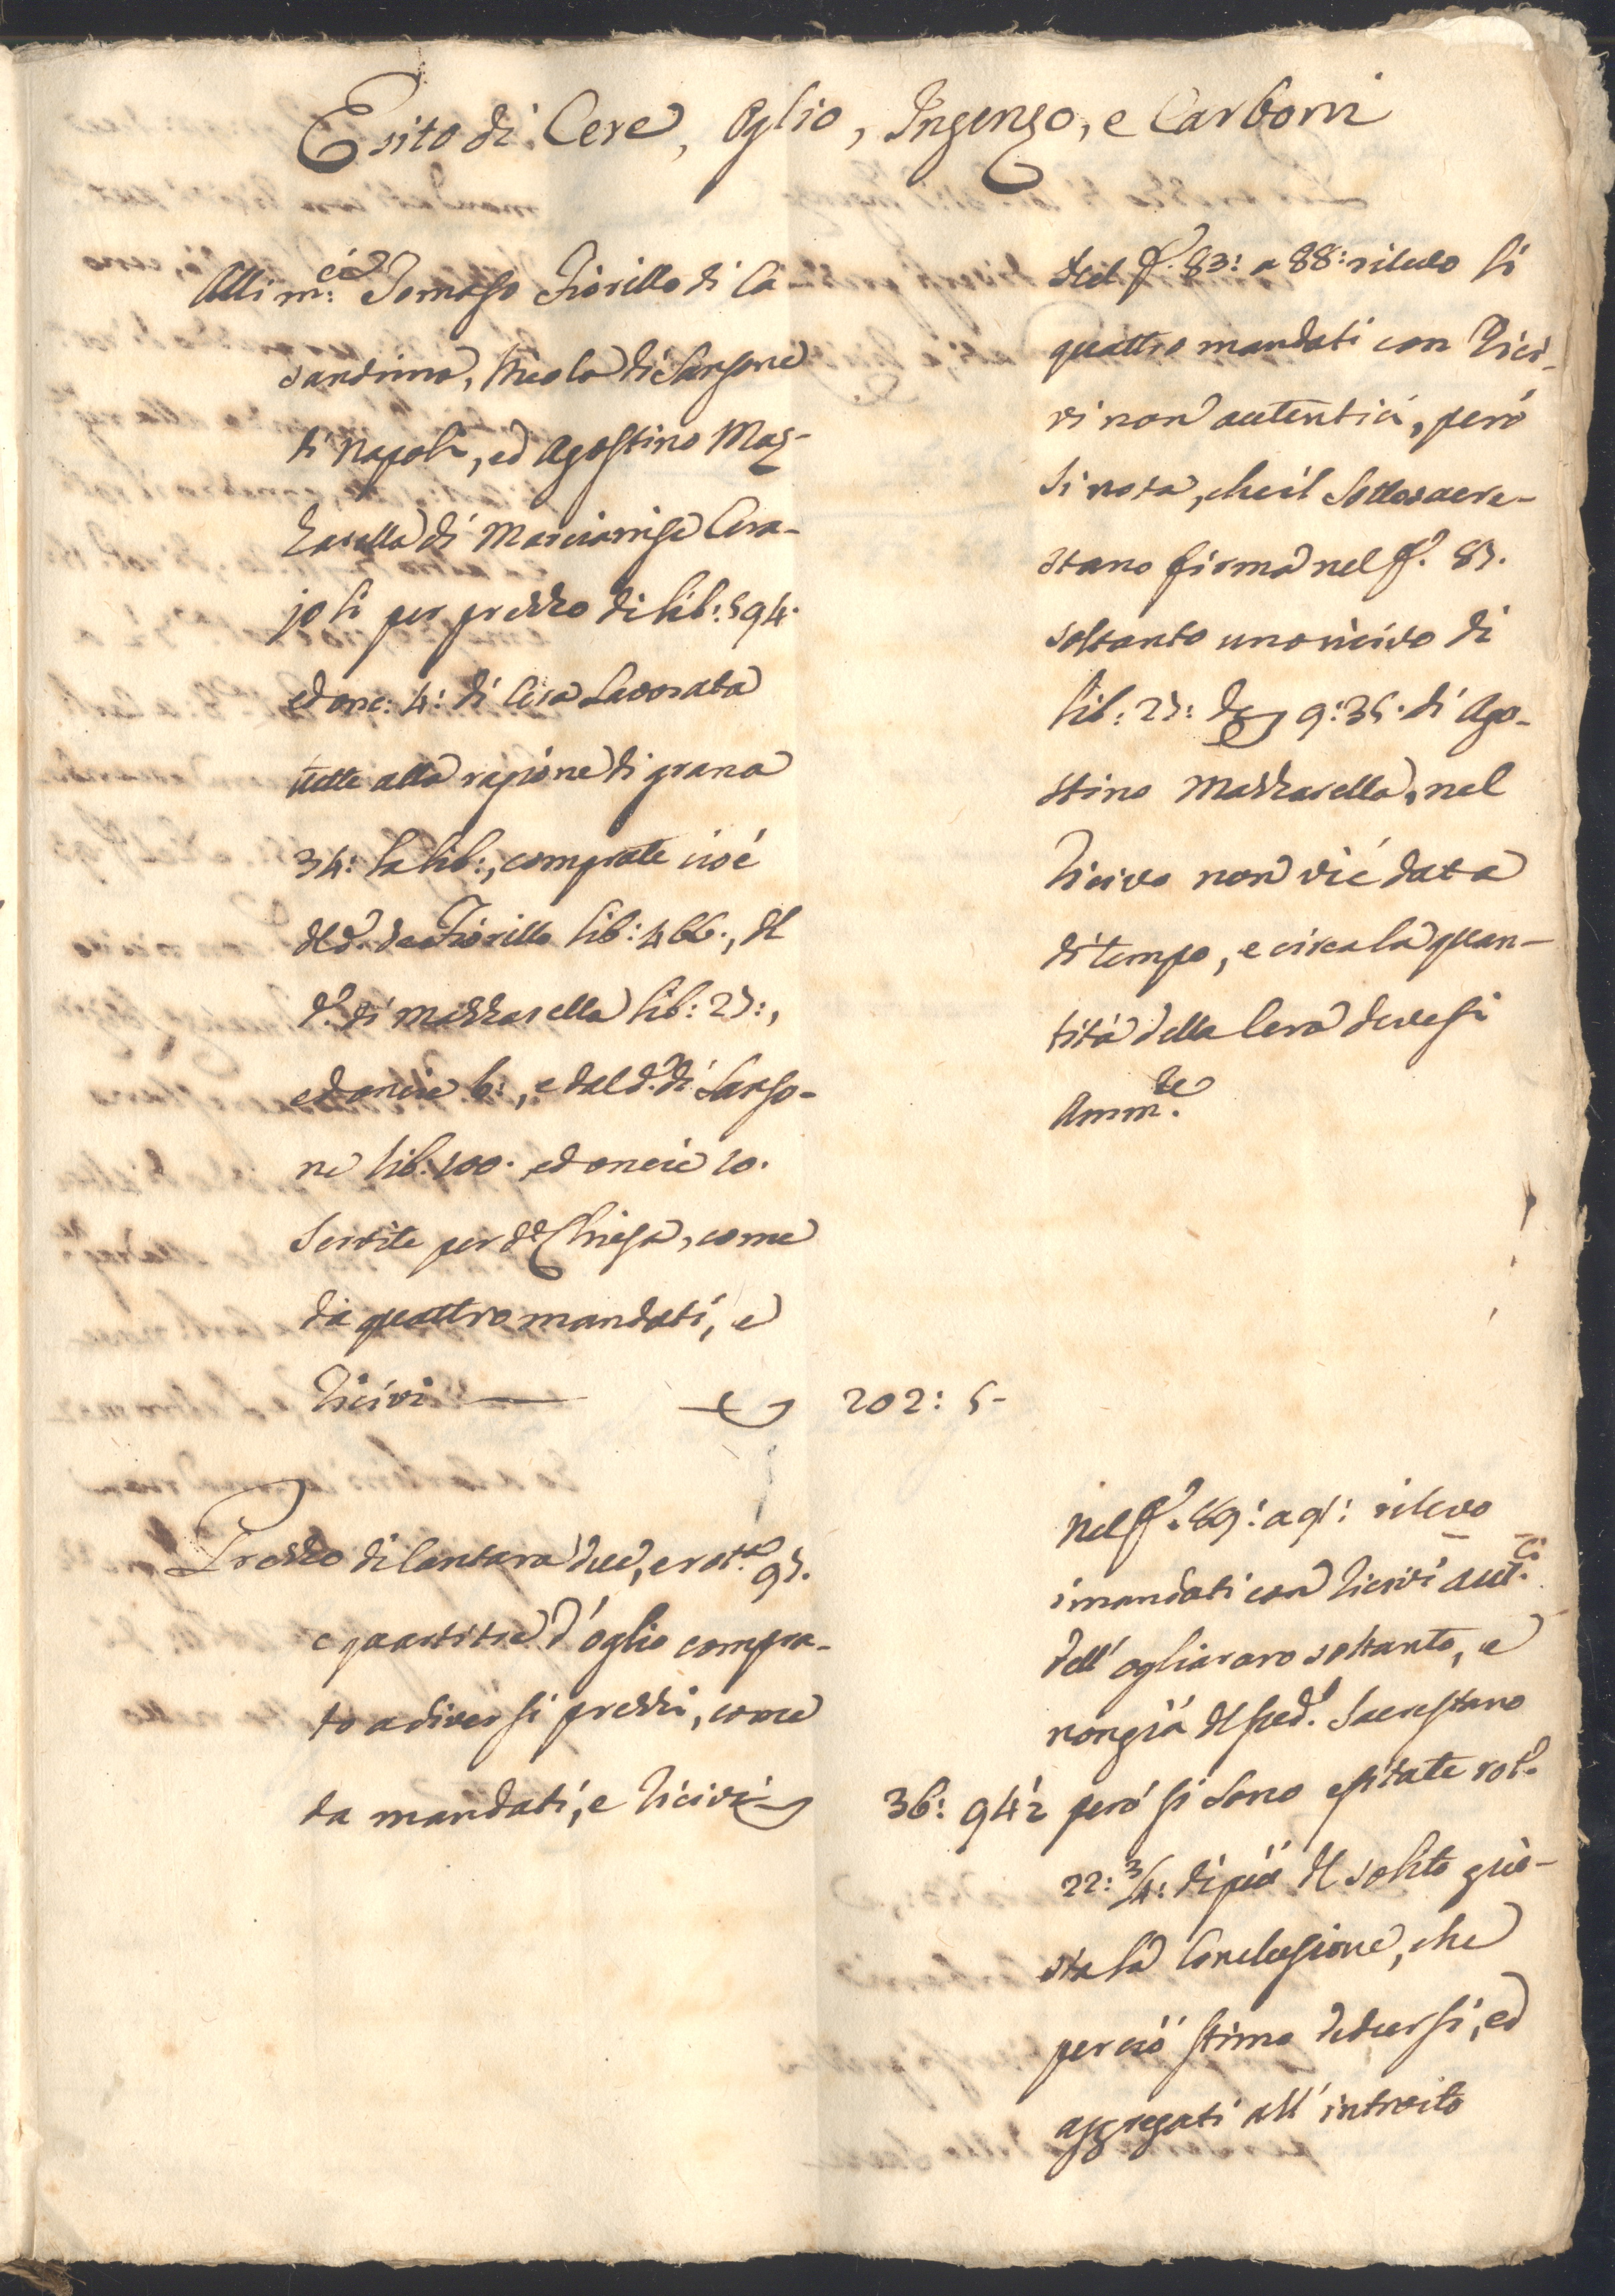 Esito di Cere, Oglio, Ingenzo, e Carboni
Alli m:ci Tomaso Fiorillo di Ca
sandrino, Nicola di Sansone
di Napoli, ed Agostino Maz-
zarella di Marcianise Cera-
joli per prezzo di lib: 594.
ed onc: 4: di Cera lavorata
tutte alla ragione di grana
34: la lib:, comprate cioè
dal d. de Fiorillo lib: 466., dal
d. di Mazzarella lib: 27:,
ed oncie 6:, e dal d. di Sanso-
ne lib. 100. ed oncie 10.
servite per d.ª Chiesa, come
da quattro mandati, e
ricivi — 202: 5-
Prezzo di Cantara due, e rot.ª 97.
e quartitre d'oglio compra-
to a diversi prezzi, come
da mandati, e ricivi 36: 94½
Dal f. 83: a 88: rilevo li
quattro mandati con rici-
vi non autentici, però
si nota, che il sottosacre-
stano firma nel f. 87.
soltanto uno ricivo di
lib: 27: 9:35. di Ago-
stino Mazzarella, nel
ricivo non vi è data
di tempo, e circa la quan-
tità della Cera devesi
Amm.te
Nel f. 89: a 91: rilevo
i mandati con ricivi aut.ci
dell'ogliararo soltanto, e
non già del sud.º Sacrestano
però si sono esitate rot.
22: ¾: di più del solito giu-
sta la Conclusione, che
perciò stimo dedursi, ed
aggregati all'introito